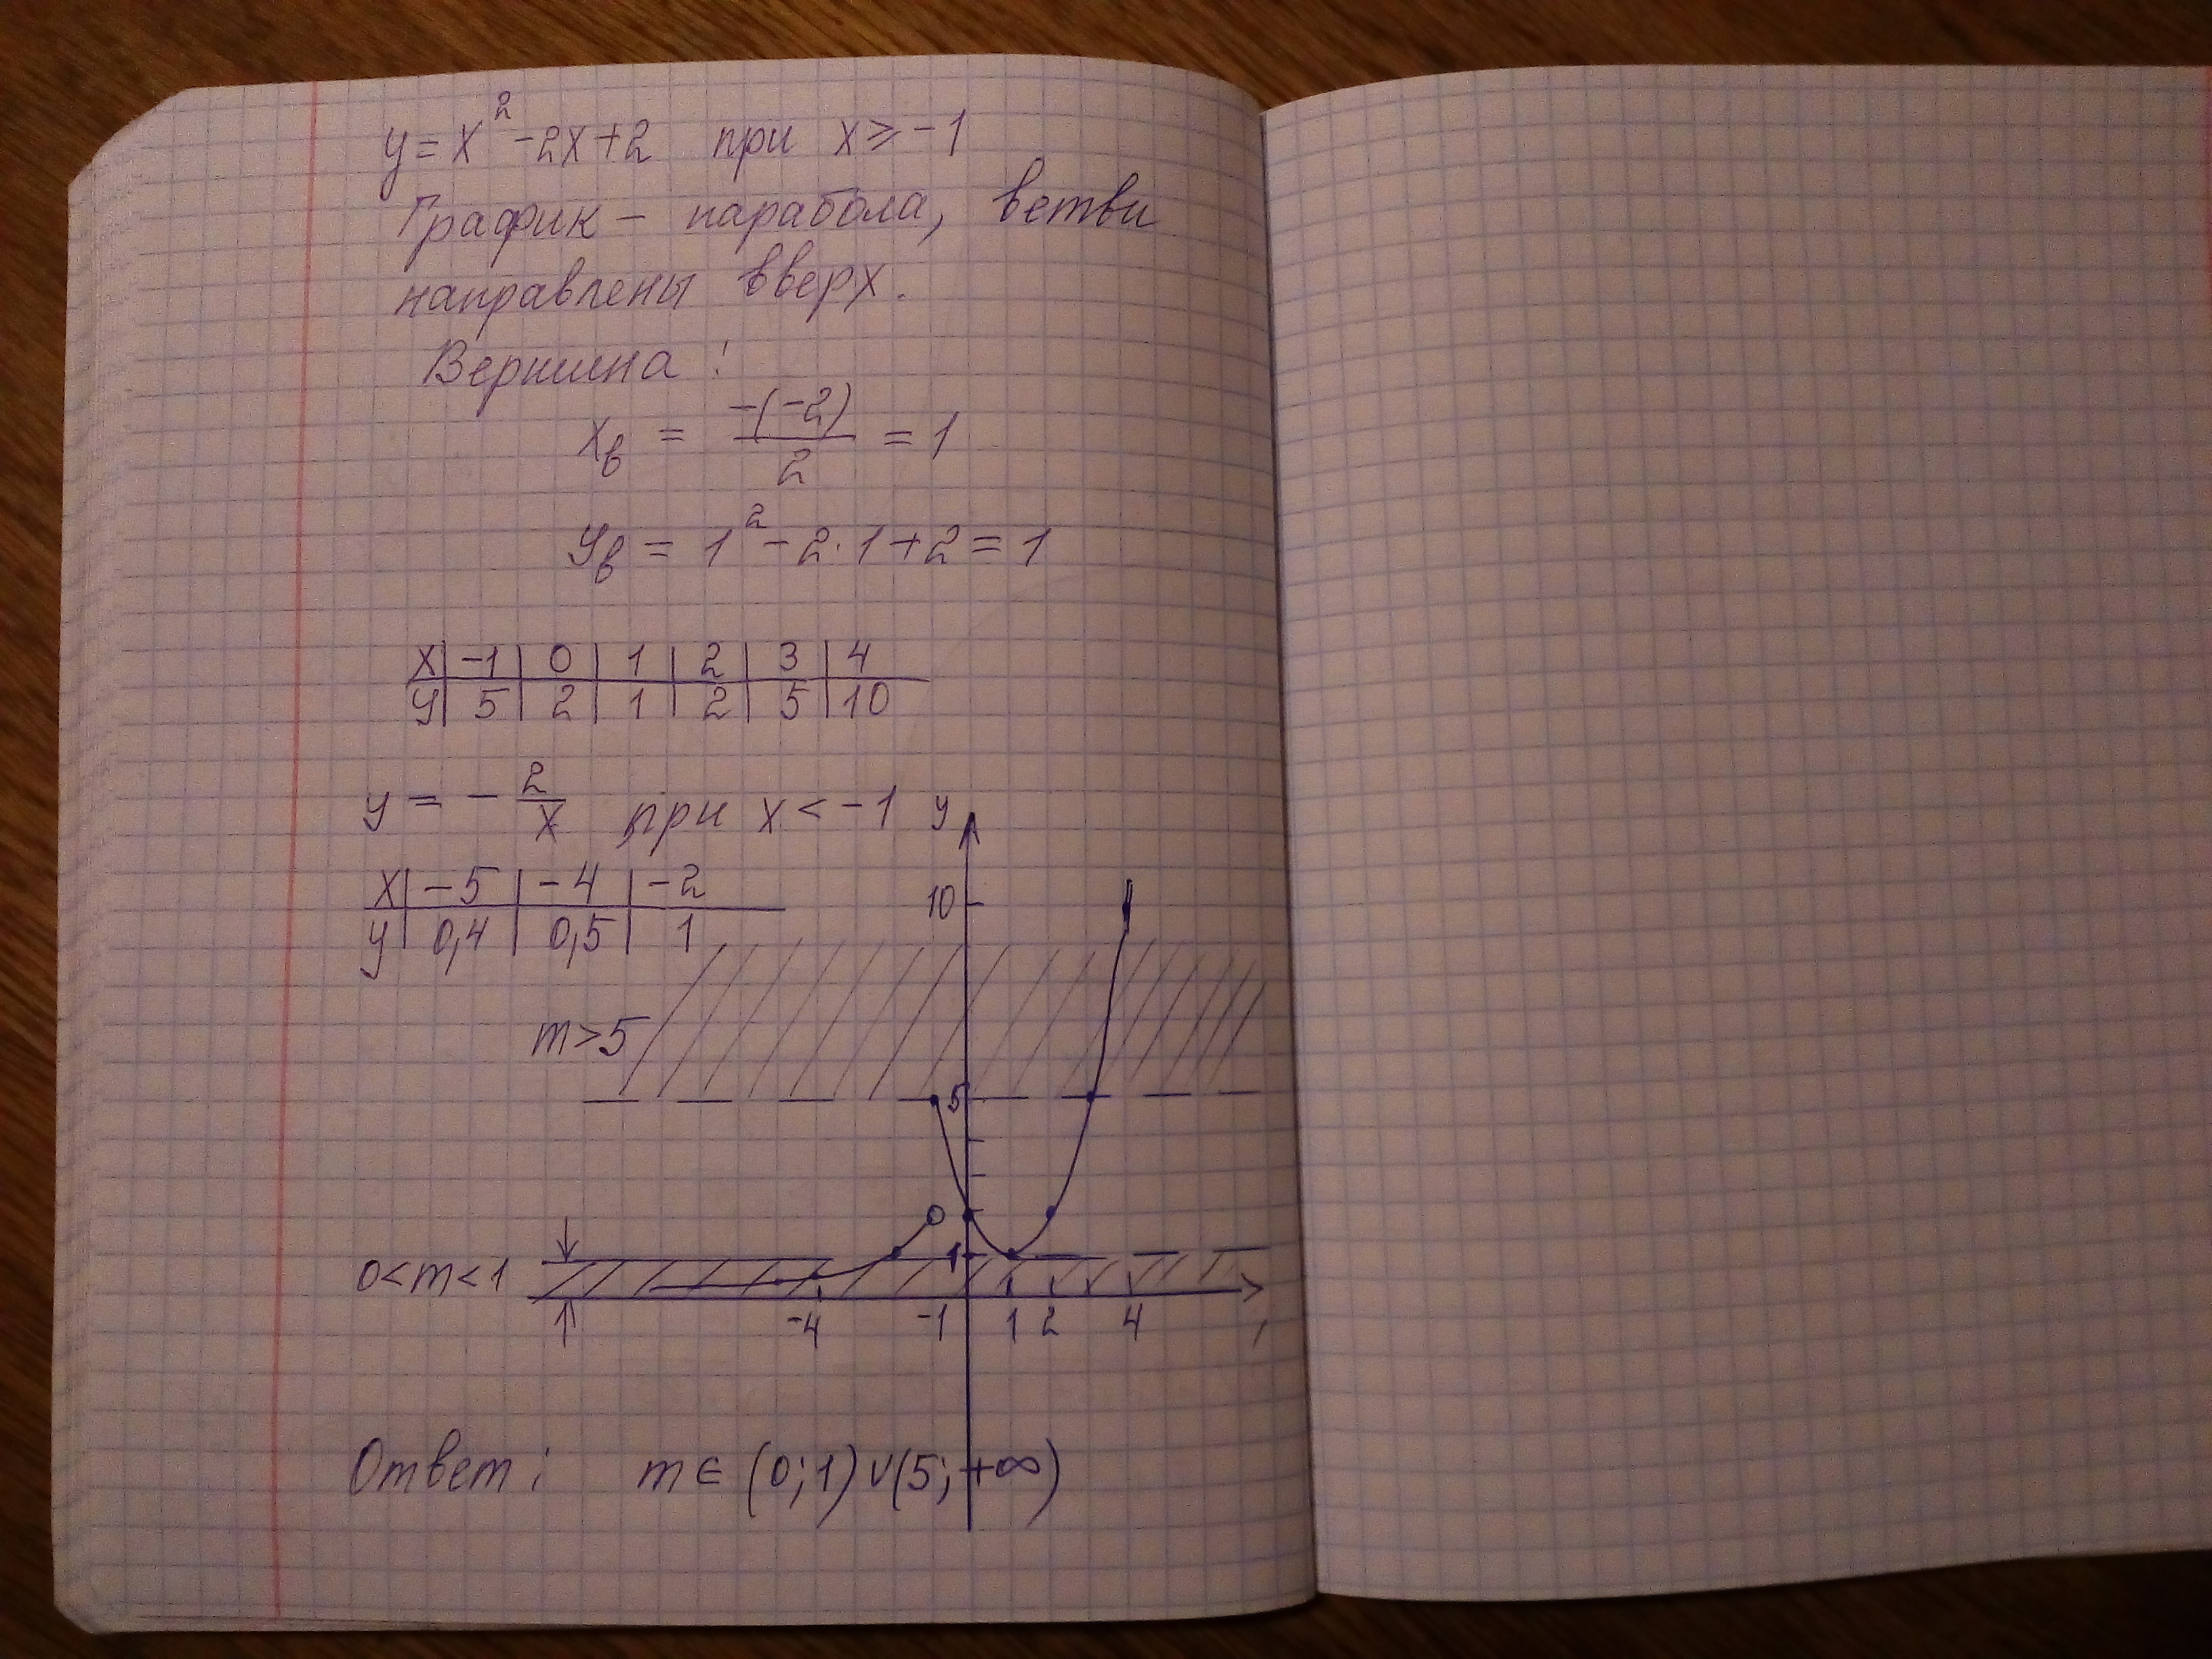 y = x² - 2x + 2 при x ≥ -1
График - парабола, ветви
направлены вверх.
Вершина:
xв = -(-2)/2 = 1
yв = 1² - 2·1 + 2 = 1
x | -1 | 0 | 1 | 2 | 3 | 4
y | 5 | 2 | 1 | 2 | 5 | 10
y = - 2/x при x < -1
x | -5 | -4 | -2
y | 0,4 | 0,5 | 1
y
10
m>5
5
1
0<m<1
-4 -1 1 2 4
Ответ: m ∈ (0; 1) ∪ (5; +∞)